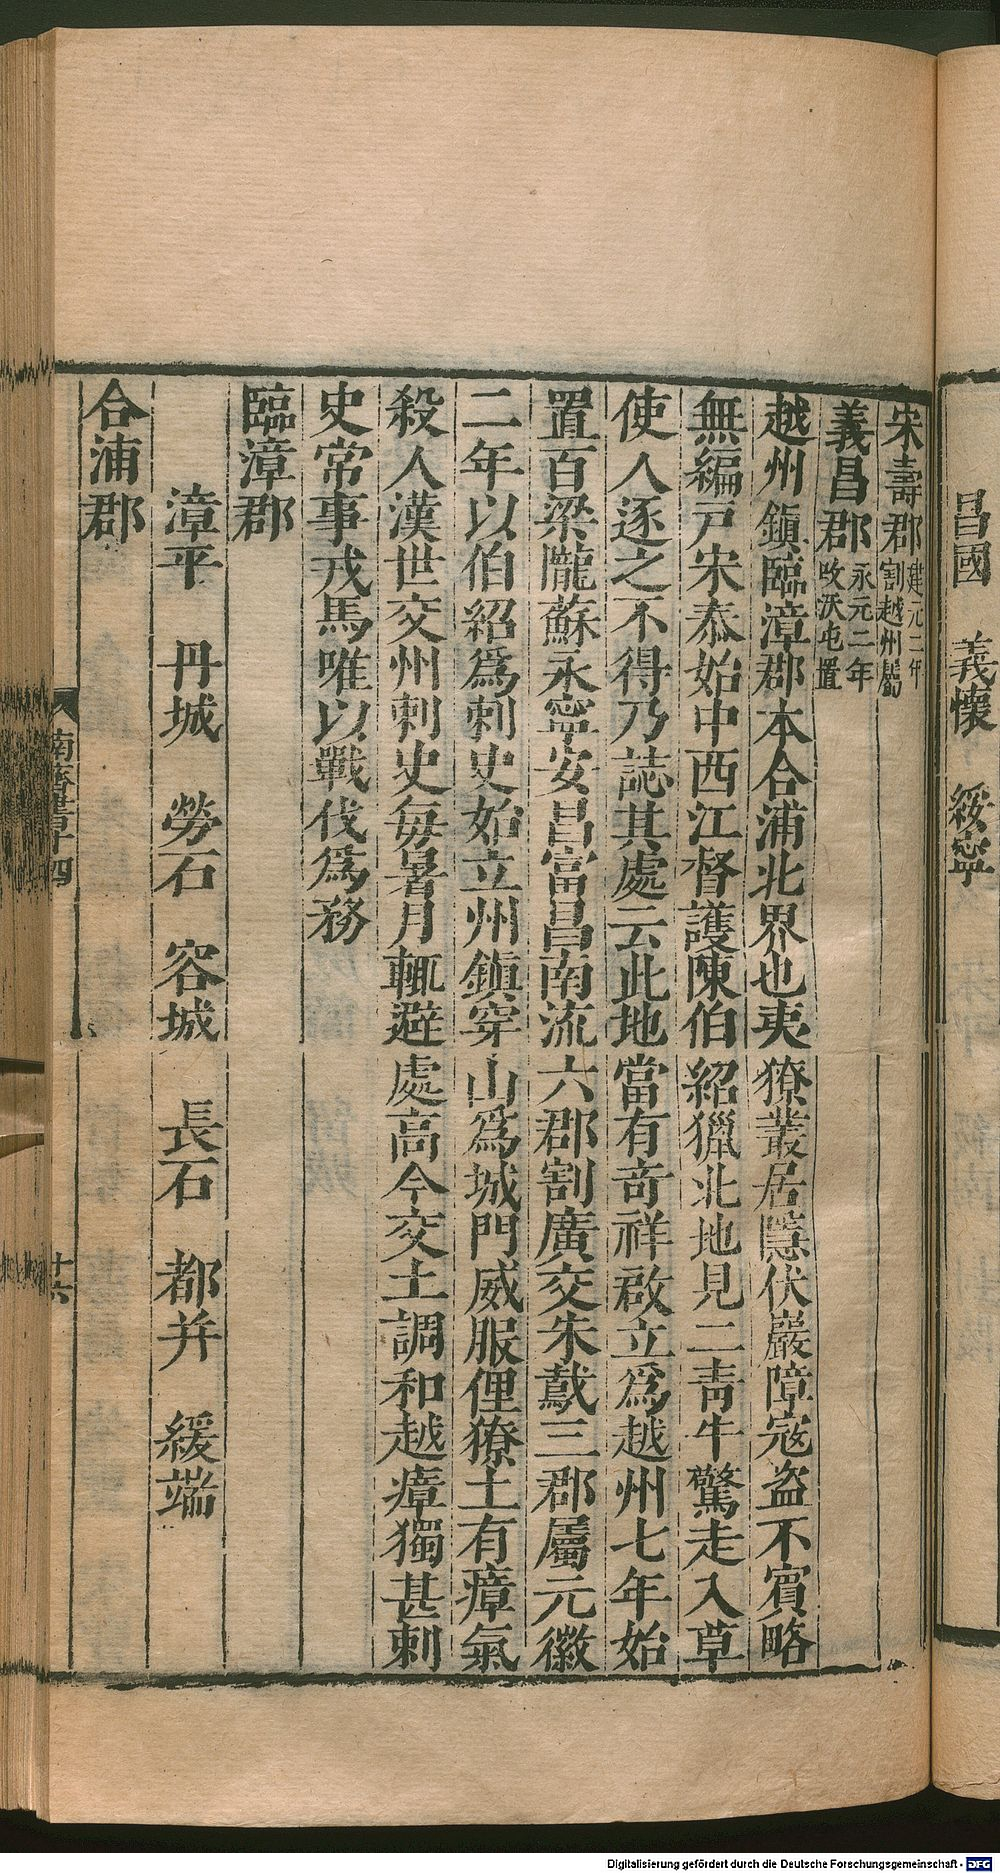 昌國　義懷　綏寧
宋壽郡建元二年割越州屬
義昌郡永元二年攺沃屯置
越州鎭臨漳郡本合浦北界也夷獠叢居隱伏巖障寇盜不賓略
無編戸宋泰始中西江督護陳伯紹獵北地見二靑牛驚走入草
使人逐之不得乃誌其處云此地當有奇祥啟立爲越州七年始
置百梁隴蘇永寧安昌富昌南流六郡割廣交朱䳒三郡屬元徽
二年以伯紹爲刺史始立州鎭穿山爲城門威服俚獠土有瘴氣
殺人漢世交州刺史每暑月輒避處高今交土調和越瘴獨甚刺
史常事戎馬唯以戰伐爲務
臨漳郡
漳平　丹城　勞石　容城　長石　都并　緩端
合浦郡
南齊書十四　十六
Digitalisierung gefördert durch die Deutsche Forschungsgemeinschaft - DFG